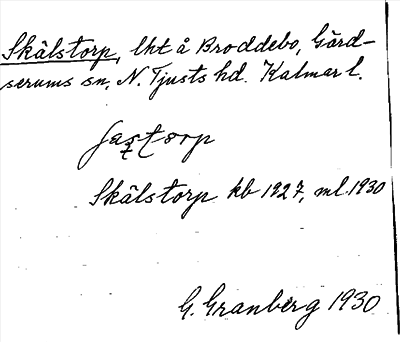 Skälstorp, lht å Broddebo, Gärd-
serums sn, N. Tjusts hd. Kalmar l.
Skälstorp kb 1927, ml. 1930
G. Granberg 1930